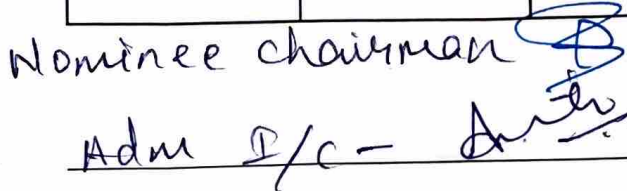 Nominee chairman
Adm I/C -